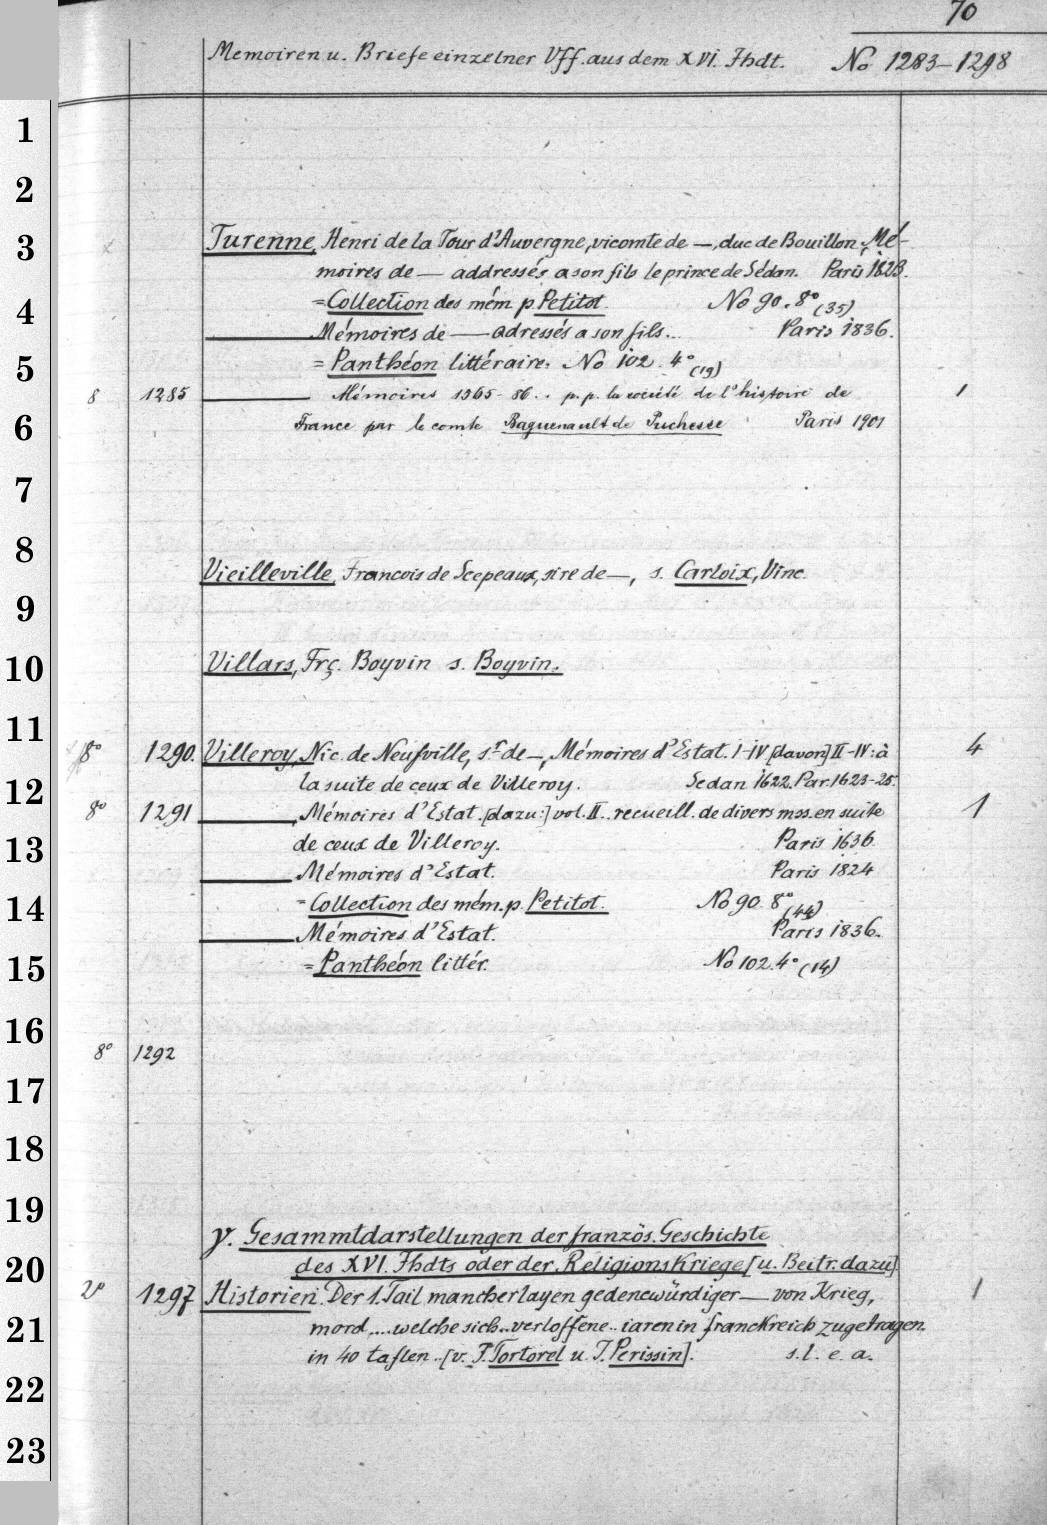 70
Memoiren u. Briefe einzelner Vff. aus dem XVI. Jhdt. No 1283-1298
1
2
3 Turenne, Henri de la Tour d'Auvergne, vicomte de —, duc de Bouillon, Mé-
moires de — addressés a son fils le prince de Sédan. Paris 1823.
= Collection des mém. p Petitot. No 90. 8° (35)
4
Mémoires de — adressés a son fils... Paris 1836.
5 = Panthéon littéraire. No 102. 4° (19)
8 1285 Mémoires 1565-86.. p. p. la société de l'histoire de 1
6 France par le comte Baguenault de Puchesse Paris 1901
7
8
Vieilleville, Francois de Scepeaux, sire de —, s. Carloix, Vinc.
9
10 Villars, Frç. Boyvin s. Boyvin.
11
8° 1290. Villeroy, Nic. de Neufville, sr de —, Mémoires d'Estat. I-IV [davon] II-IV: à 4
12 la suite de ceux de Villeroy. Sedan 1622. Par. 1623-25.
8° 1291 Mémoires d'Estat. [dazu:] vol. II.. recueill. de divers mss. en suite 1
13 de ceux de Villeroy. Paris 1636.
Mémoires d'Estat. Paris 1824
14 = Collection des mém. p. Petitot. No 90. 8° (44)
Mémoires d'Estat. Paris 1836.
15 = Panthéon littér. No 102. 4° (14)
16
8° 1292
17
18
19
γ. Gesammtdarstellungen der französ. Geschichte
20 des XVI. Jhdts oder der Religionskriege [u. Beitr. dazu]
2° 1297 Historien. Der 1. Tail mancherlayen gedencwürdiger — von Krieg, 1
21 mord.... welche sich.. verloffene.. iaren in franckreich zugetragen.
in 40 taflen.. [v. J. Tortorel u. J. Perissin]. s. l. e. a.
22
23